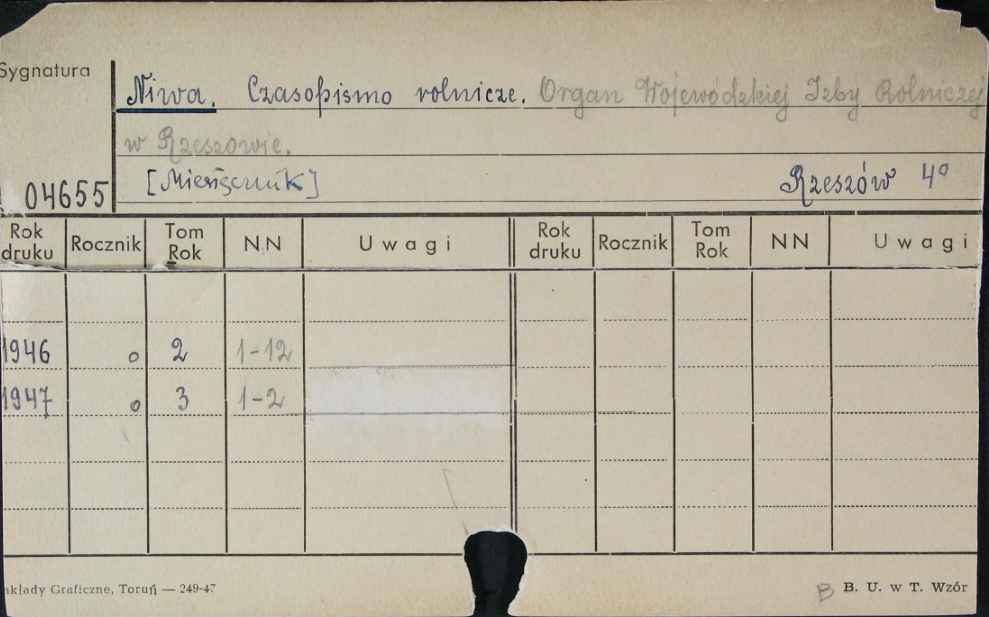 Sygnatura
Niwa. Czasopismo rolnicze. Organ Wojewódzkiej Izby Rolniczej
w Rzeszowie.
04655 [Miesięcznik] Rzeszów 4°
Rok druku Rocznik Tom Rok NN Uwagi Rok druku Rocznik Tom Rok NN Uwagi
1946 o 2 1-12
1947 o 3 1-2
akłady Graficzne, Toruń — 249-47 B B. U. w T. Wzór